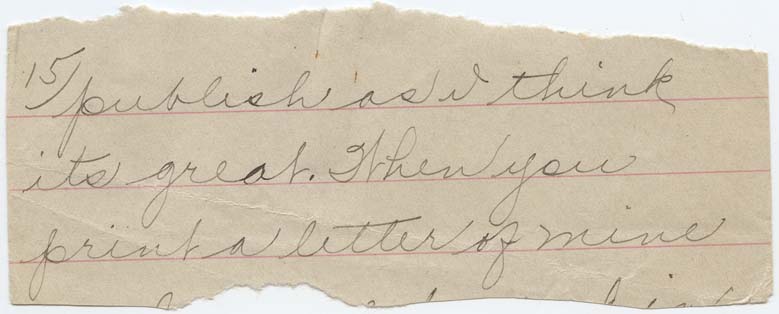 15/ publish as I think
its great. When you
print a letter of mine